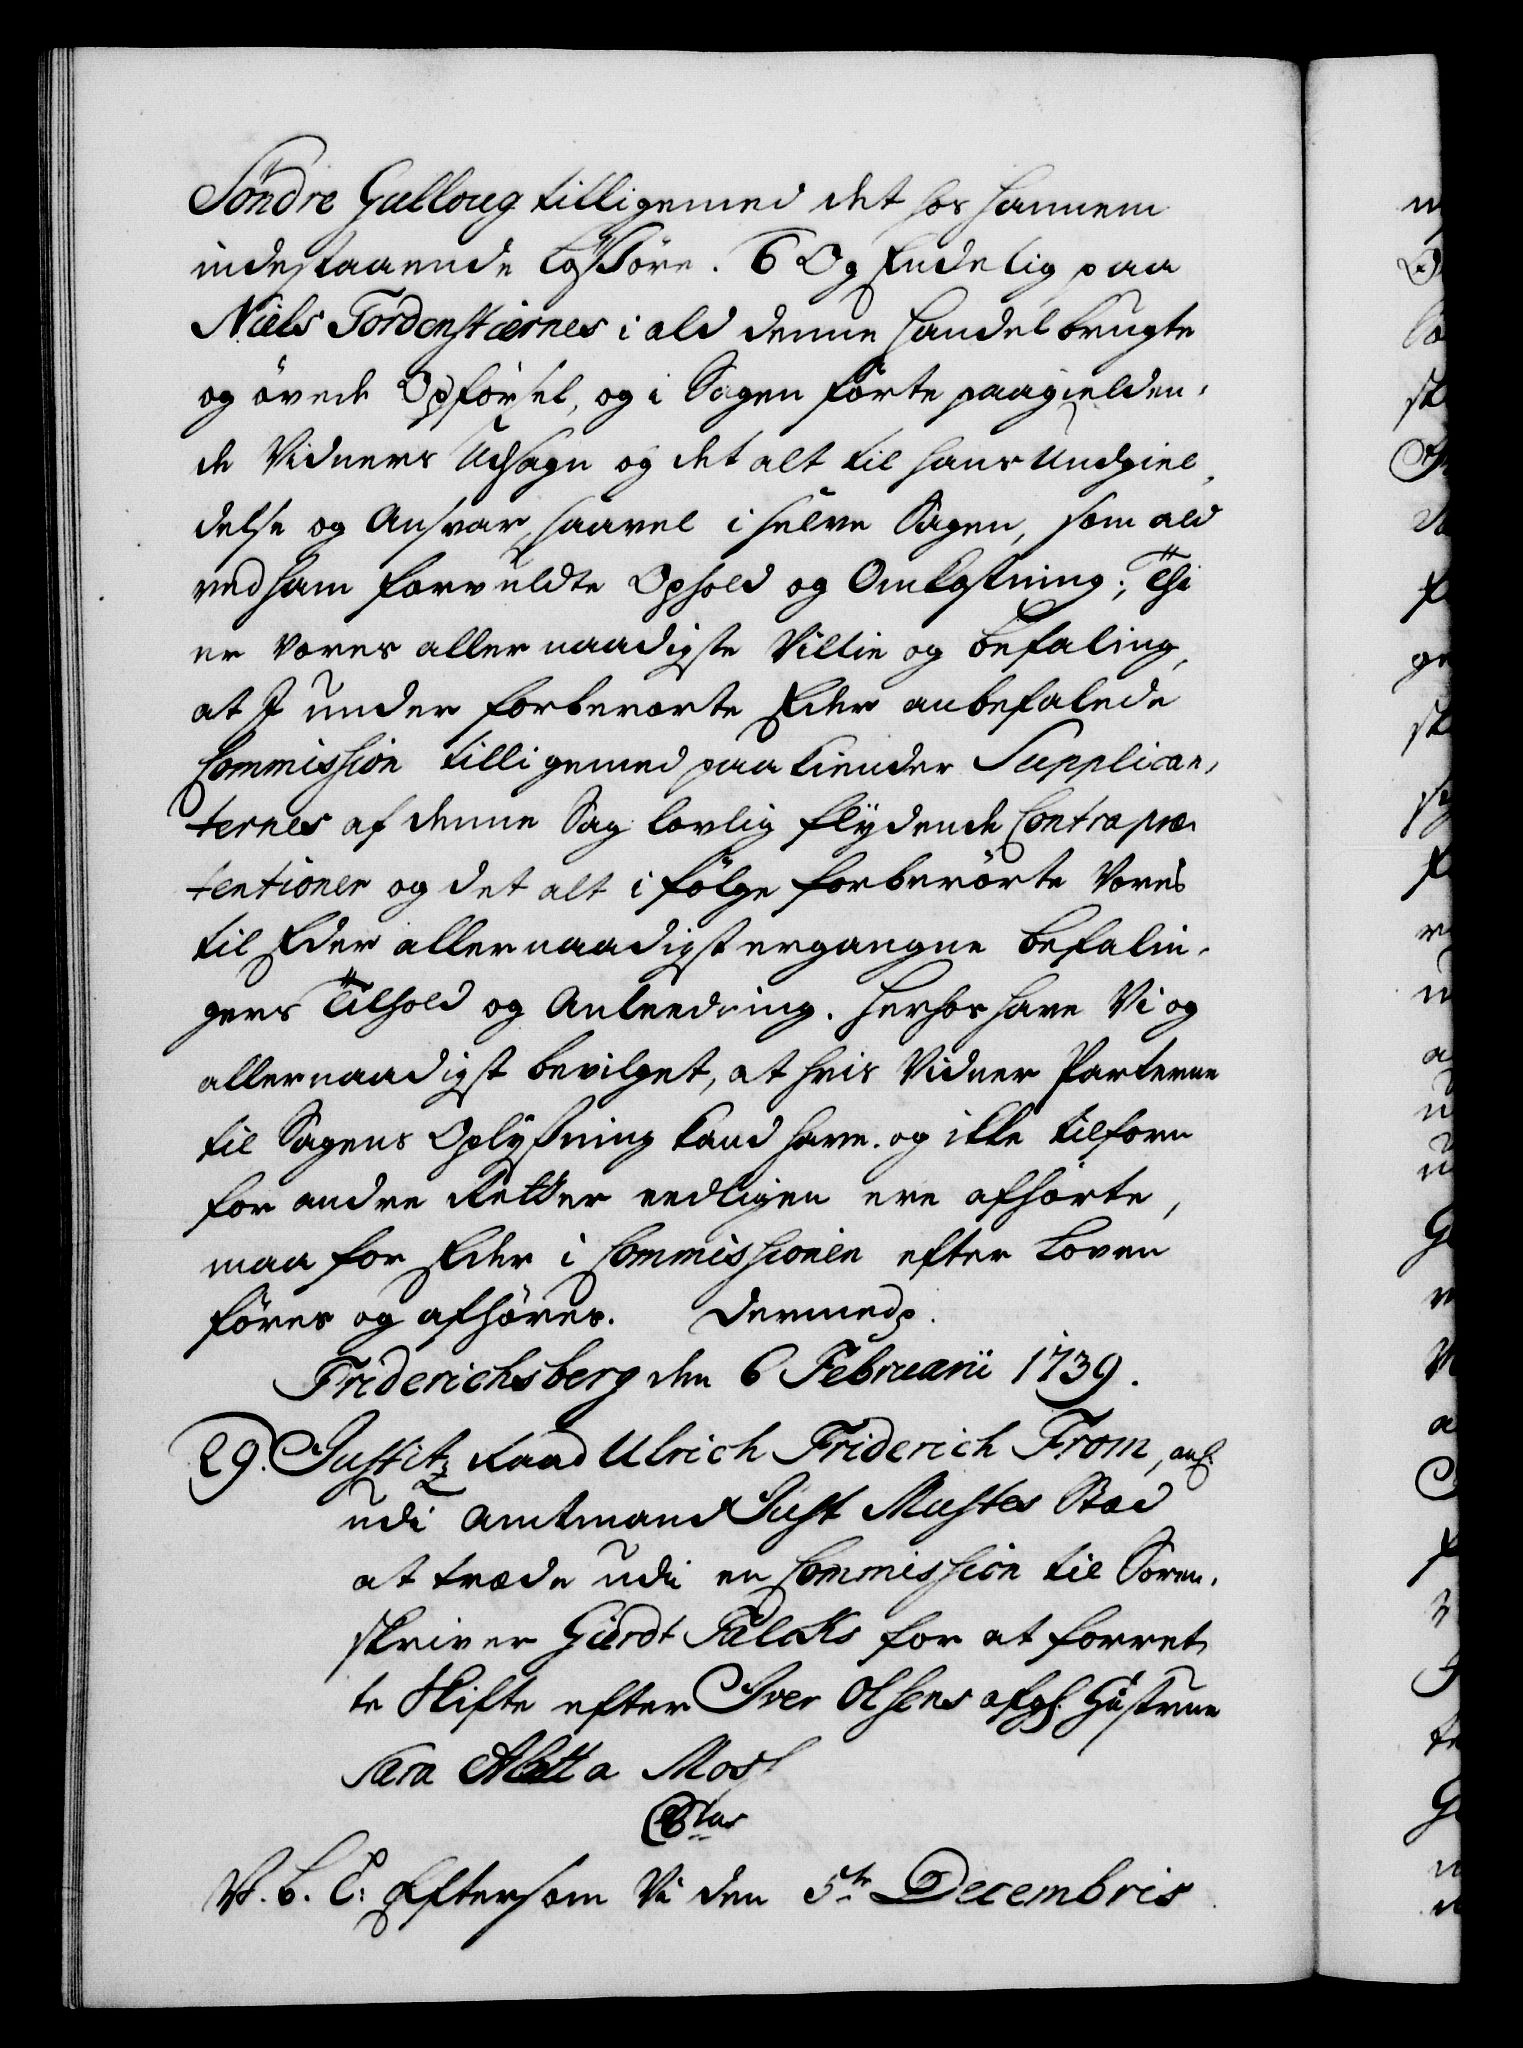 Söndre Gulloug tilligemed det hos hannem
indestaaende Løsøre. 6 Og Endelig paa
Niels Tordenstiernes i ald denne Handel brugte
og övede Opførsel, og i Sagen førte paagielden,
de Vidners Udsagn og det alt til hans Undgiel,
delse og Ansvar, saavel i selve Sagen, som ald
ved ham forvuldte Ophold og Omkostning; Thi
er Vores allernaadigste Villie og Befaling,
at I under forberørte Eder anbefalede
Commission tilligemed paakiender Supplican,
ternes af denne Sag lovlig flÿdende Contrapræ,
tentioner og det alt i følge forberørte Vores
til Eder allernaadigst ergangne Befalin,
gers Tilhold og Anleedning. Herhos have Vi og
allernaadigst bevilget, at hvis Vidner Parterne
til Sagens Oplysning kand have og ikke tilforn
for andre Retter eedligen ere afhørte,
maa for Eder i Commissionen efter Loven
føres og afhøres. Dermed
Friderichsberg den 6 Februarii 1739.
29. Justitz Raad Ulrich Friderich From, anl.
udi Amtmand Just Mustes Stæd
at træde udi en Commission til Soren,
skriver Giærdt Falcks for at forret,
te Skifte efter Iver Olsens afgl. Hustrue
Sara Aletta Moss
C 6tus
V. G. T: Eftersom Vi den 5te Decembris